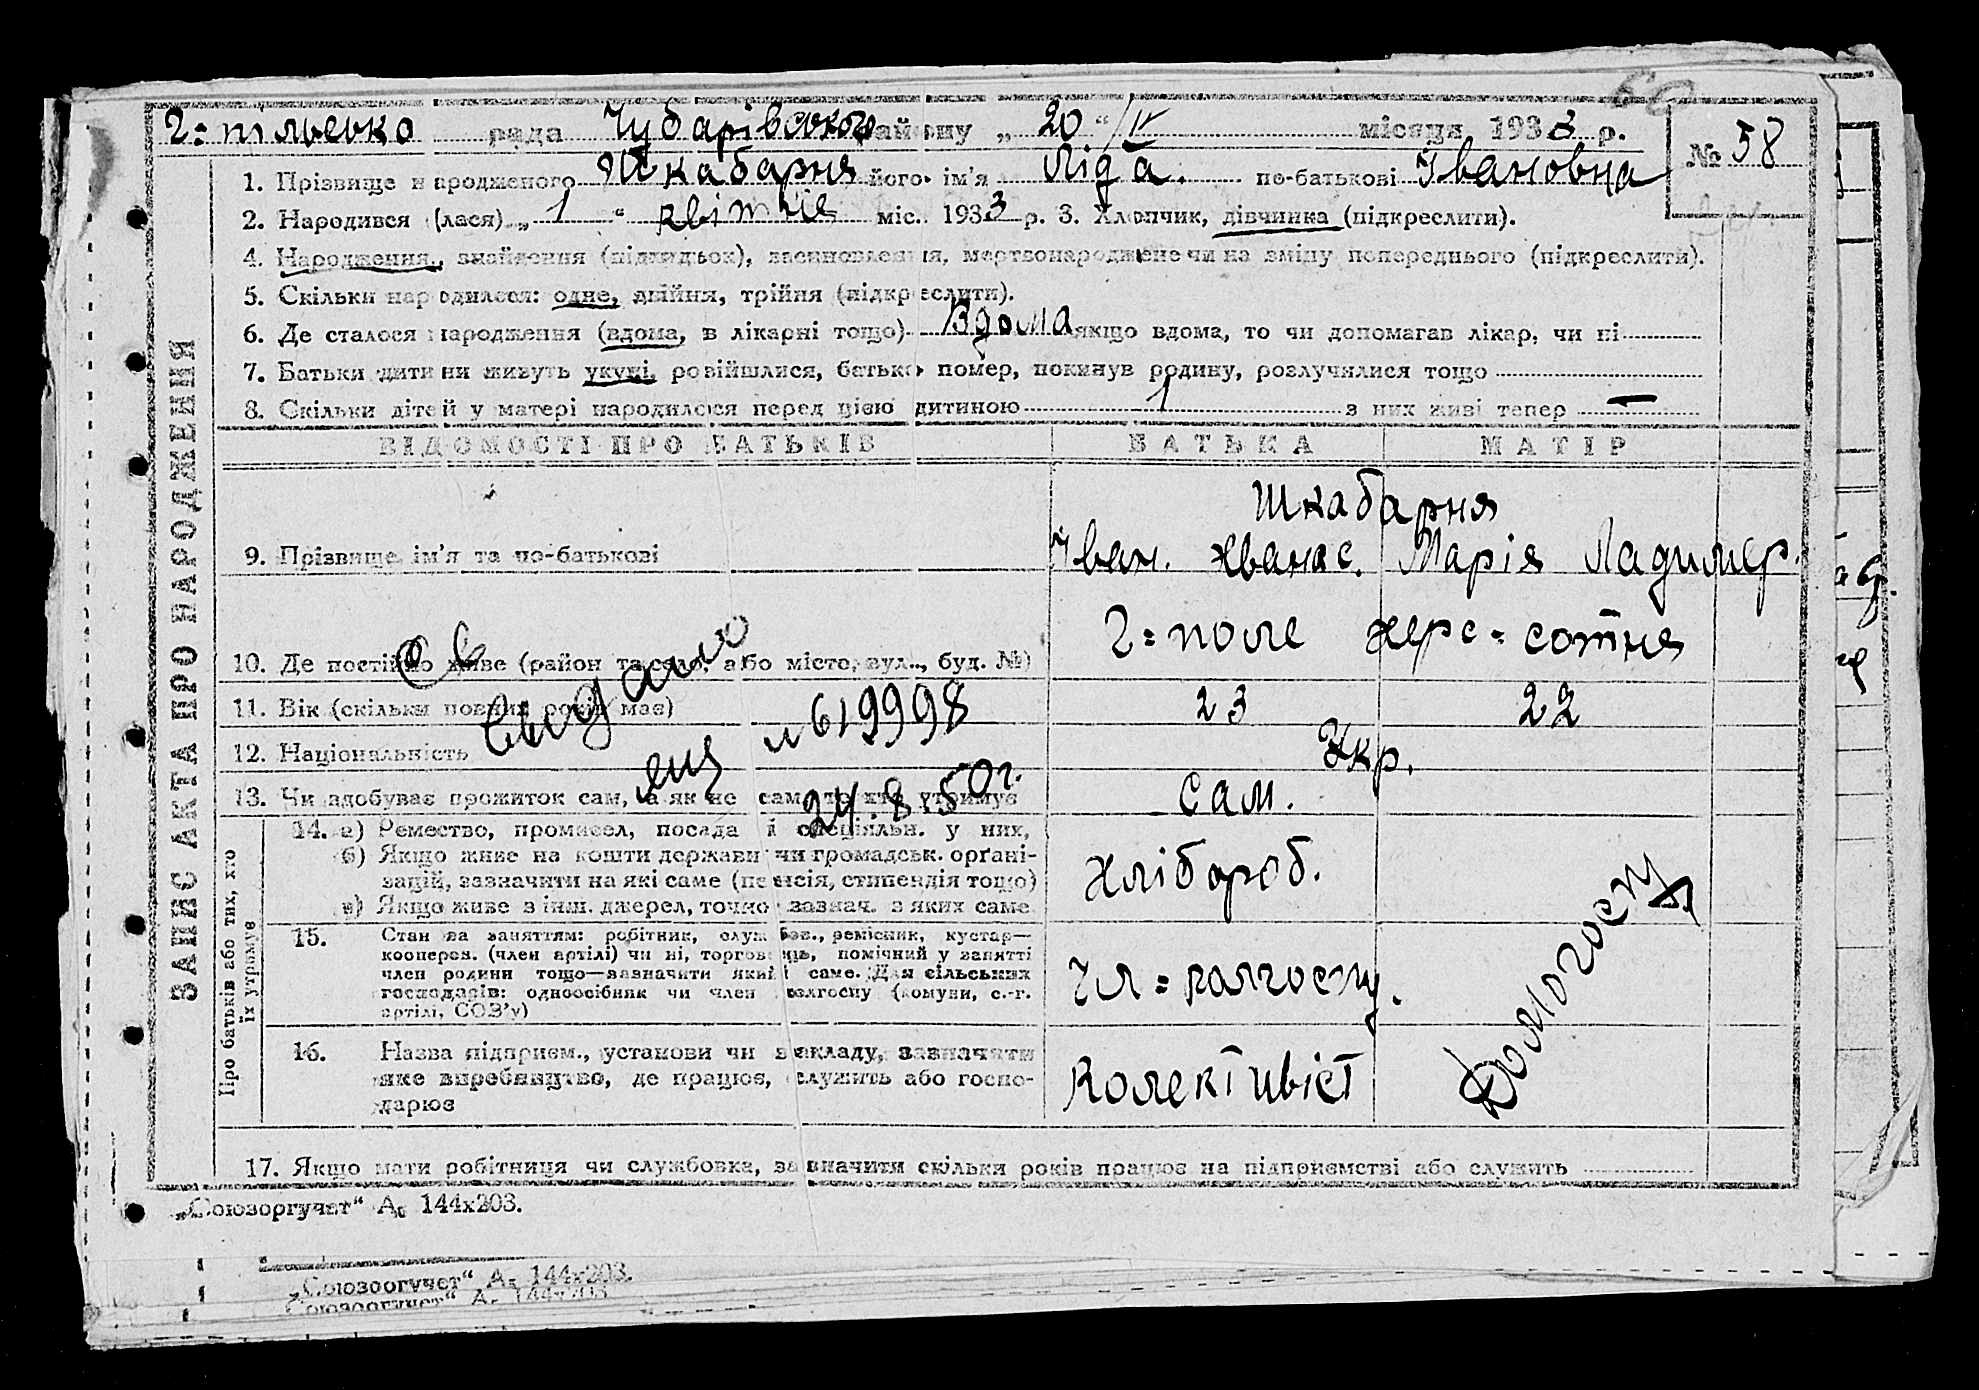 Г=пільська рада Чубарівського району „20“ IV місяця 1933 р.
№ 58
60
1. Прізвище народженого Шкабарня його ім'я Ліда. по-батькові Івановна
2. Народився (лася) „1“ квітня міс. 1933 р. 3. Хлопчик, дівчинка (підкреслити).
4. Народження, знайдення (підкидьок), засиновлення, мертвонароджене чи на зміну попереднього (підкреслити).
5. Скільки народилося: одне, двійня, трійня (підкреслити).
6. Де сталося народження (вдома, в лікарні тощо) Вдома якщо вдома, то чи допомагав лікар, чи ні
7. Батьки дитини живуть укупі, розійшлися, батько помер, покинув родину, розлучилися тощо
8. Скільки дітей у матері народилося перед цією дитиною 1 з них живі тепер —
ВІДОМОСТІ ПРО БАТЬКІВ БАТЬКА МАТІР
Шкабарня
9. Прізвище, ім'я та по-батькові Іван. Хванас. Марія Ладимер.
10. Де постійно живе (район та село, або місто, вул., буд. №) Г=поле херс=сотня
11. Вік (скільки повних років має) 23 22
12. Національність Укр.
13. Чи здобуває прожиток сам, а як не сам, то хто утримує Сам.
14. а) Ремество, промисел, посада і спеціяльн. у них,
б) Якщо живе на кошти держави чи громадськ. орґані-
зацій, зазначити на які саме (пенсія, стипендія тощо)
в) Якщо живе з інш. джерел, точно зазнач. з яких саме
хлібороб.
15. Стан за заняттям: робітник, службов., ремісник, кустар—
кооперов. (член артілі) чи ні, торговець, помічний у занятті
член родини тощо—зазначити який саме. Для сільських
господарів: одноосібник чи член колгоспу (комуни, с.-г.
артілі, СОЗ'у)
Чл=колгоспу.
16. Назва підприєм., установи чи закладу, зазначити
яке виробництво, де працює, служить або госпо-
дарює
Колективіст
Домогосп
17. Якщо мати робітниця чи службовка, зазначити скільки років працює на підприємстві або служить
ЗАПИС АКТА ПРО НАРОДЖЕННЯ
Про батьків або тих, хто
їх утримує
№ 619998
24.8.50г.
„Союзоргучет“ А. 144х203.
„Союзоргучет“ А. 144х203.
„Союзоргучет“ А. 144х203